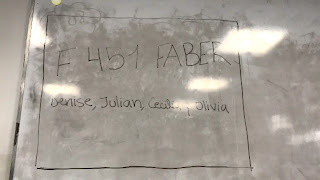 F 451 FABER
Denise, Julian, Cecile, Olivia